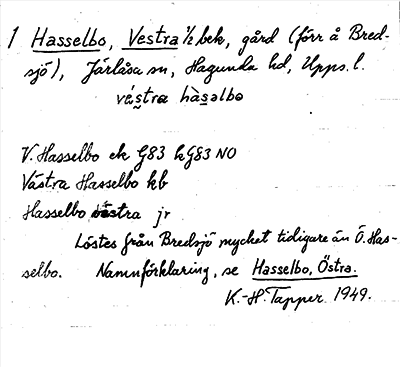 1 Hasselbo, Vestra 1/2 bek, gård (förr å Bred-
sjö), Järlåsa sn, Hagunda hd, Upps. l.
västra hàsəlbo
V. Hasselbo ek G83 kG83 NO
Västra Hasselbo kb
Hasselbo västra jr
Löstes från Bredsjö mycket tidigare än Ö. Has-
selbo. Namnförklaring, se Hasselbo, Östra.
K.-H. Tapper 1949.